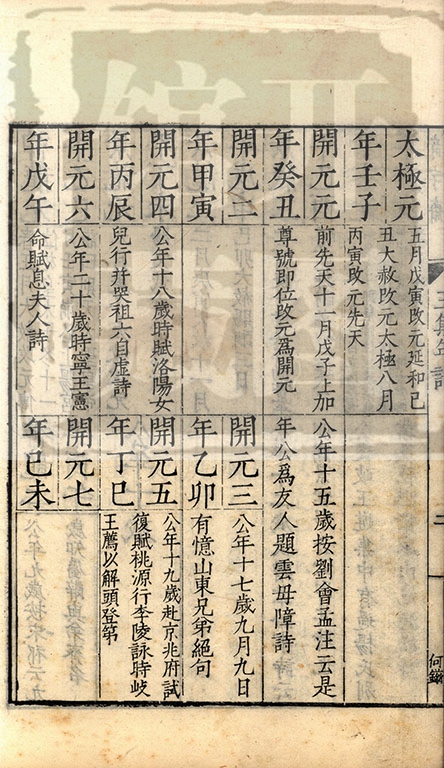 太極元
年壬子
五月戊寅改元延和已
丑大赦改元太極八月
丙寅改元先天
開元元
年癸丑
前先天十一月戊子上加
尊號即位改元爲開元
公年十五歲按劉會孟注云是
年公爲友人題雲母障詩
開元二
年甲寅
開元三
年乙卯
公年十七歲九月九日
有憶山東兄弟絕句
開元四
年丙辰
公年十八歲時賦洛陽女
兒行并哭祖六自虛詩
開元五
年丁巳
公年十九歲赴京兆府試
復賦桃源行李陵詠時岐
王薦以解頭登第
開元六
年戊午
公年二十歲時寧王憲
命賦息夫人詩
開元七
年已未
二